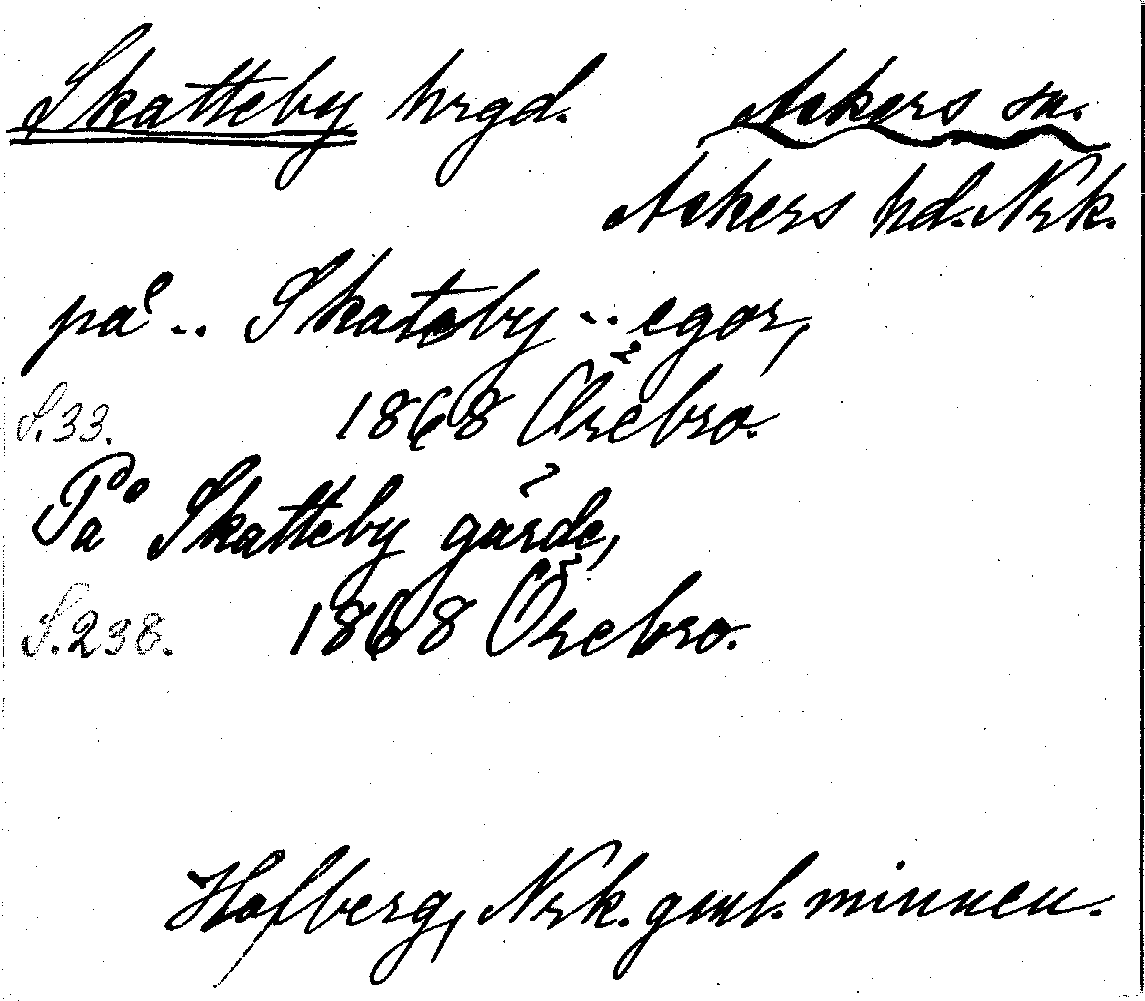 Skatteby hrgd. Askers sn.
Askers hd. Nrk.
på .. Skateby .. egor,
S. 33. 1868 Örebro.
På Skatteby gärde,
S. 238. 1868 Örebro.
Hofberg, Nrk. gml. minnen.